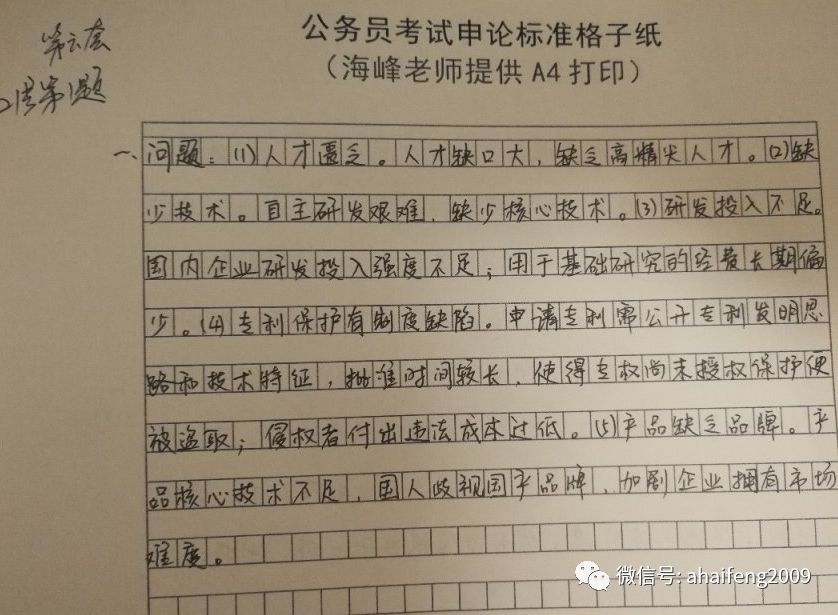 公务员考试申论标准格子纸
（海峰老师提供 A4 打印）
第六套
第1题
一、问题：(1)人才匮乏。人才缺口大，缺乏高精尖人才。(2)缺
少技术。自主研发艰难，缺少核心技术。(3)研发投入不足。
国内企业研发投入强度不足；用于基础研究的经费长期偏
少。(4)专利保护有制度缺陷。申请专利需公开专利发明思
路和技术特征，批准时间较长，使得专权尚未授权保护便
被盗取；侵权者付出违法成本过低。(5)产品缺乏品牌。产
品核心技术不足，国人歧视国产品牌，加剧企业拥有市场
难度。
微信号: ahaifeng2009